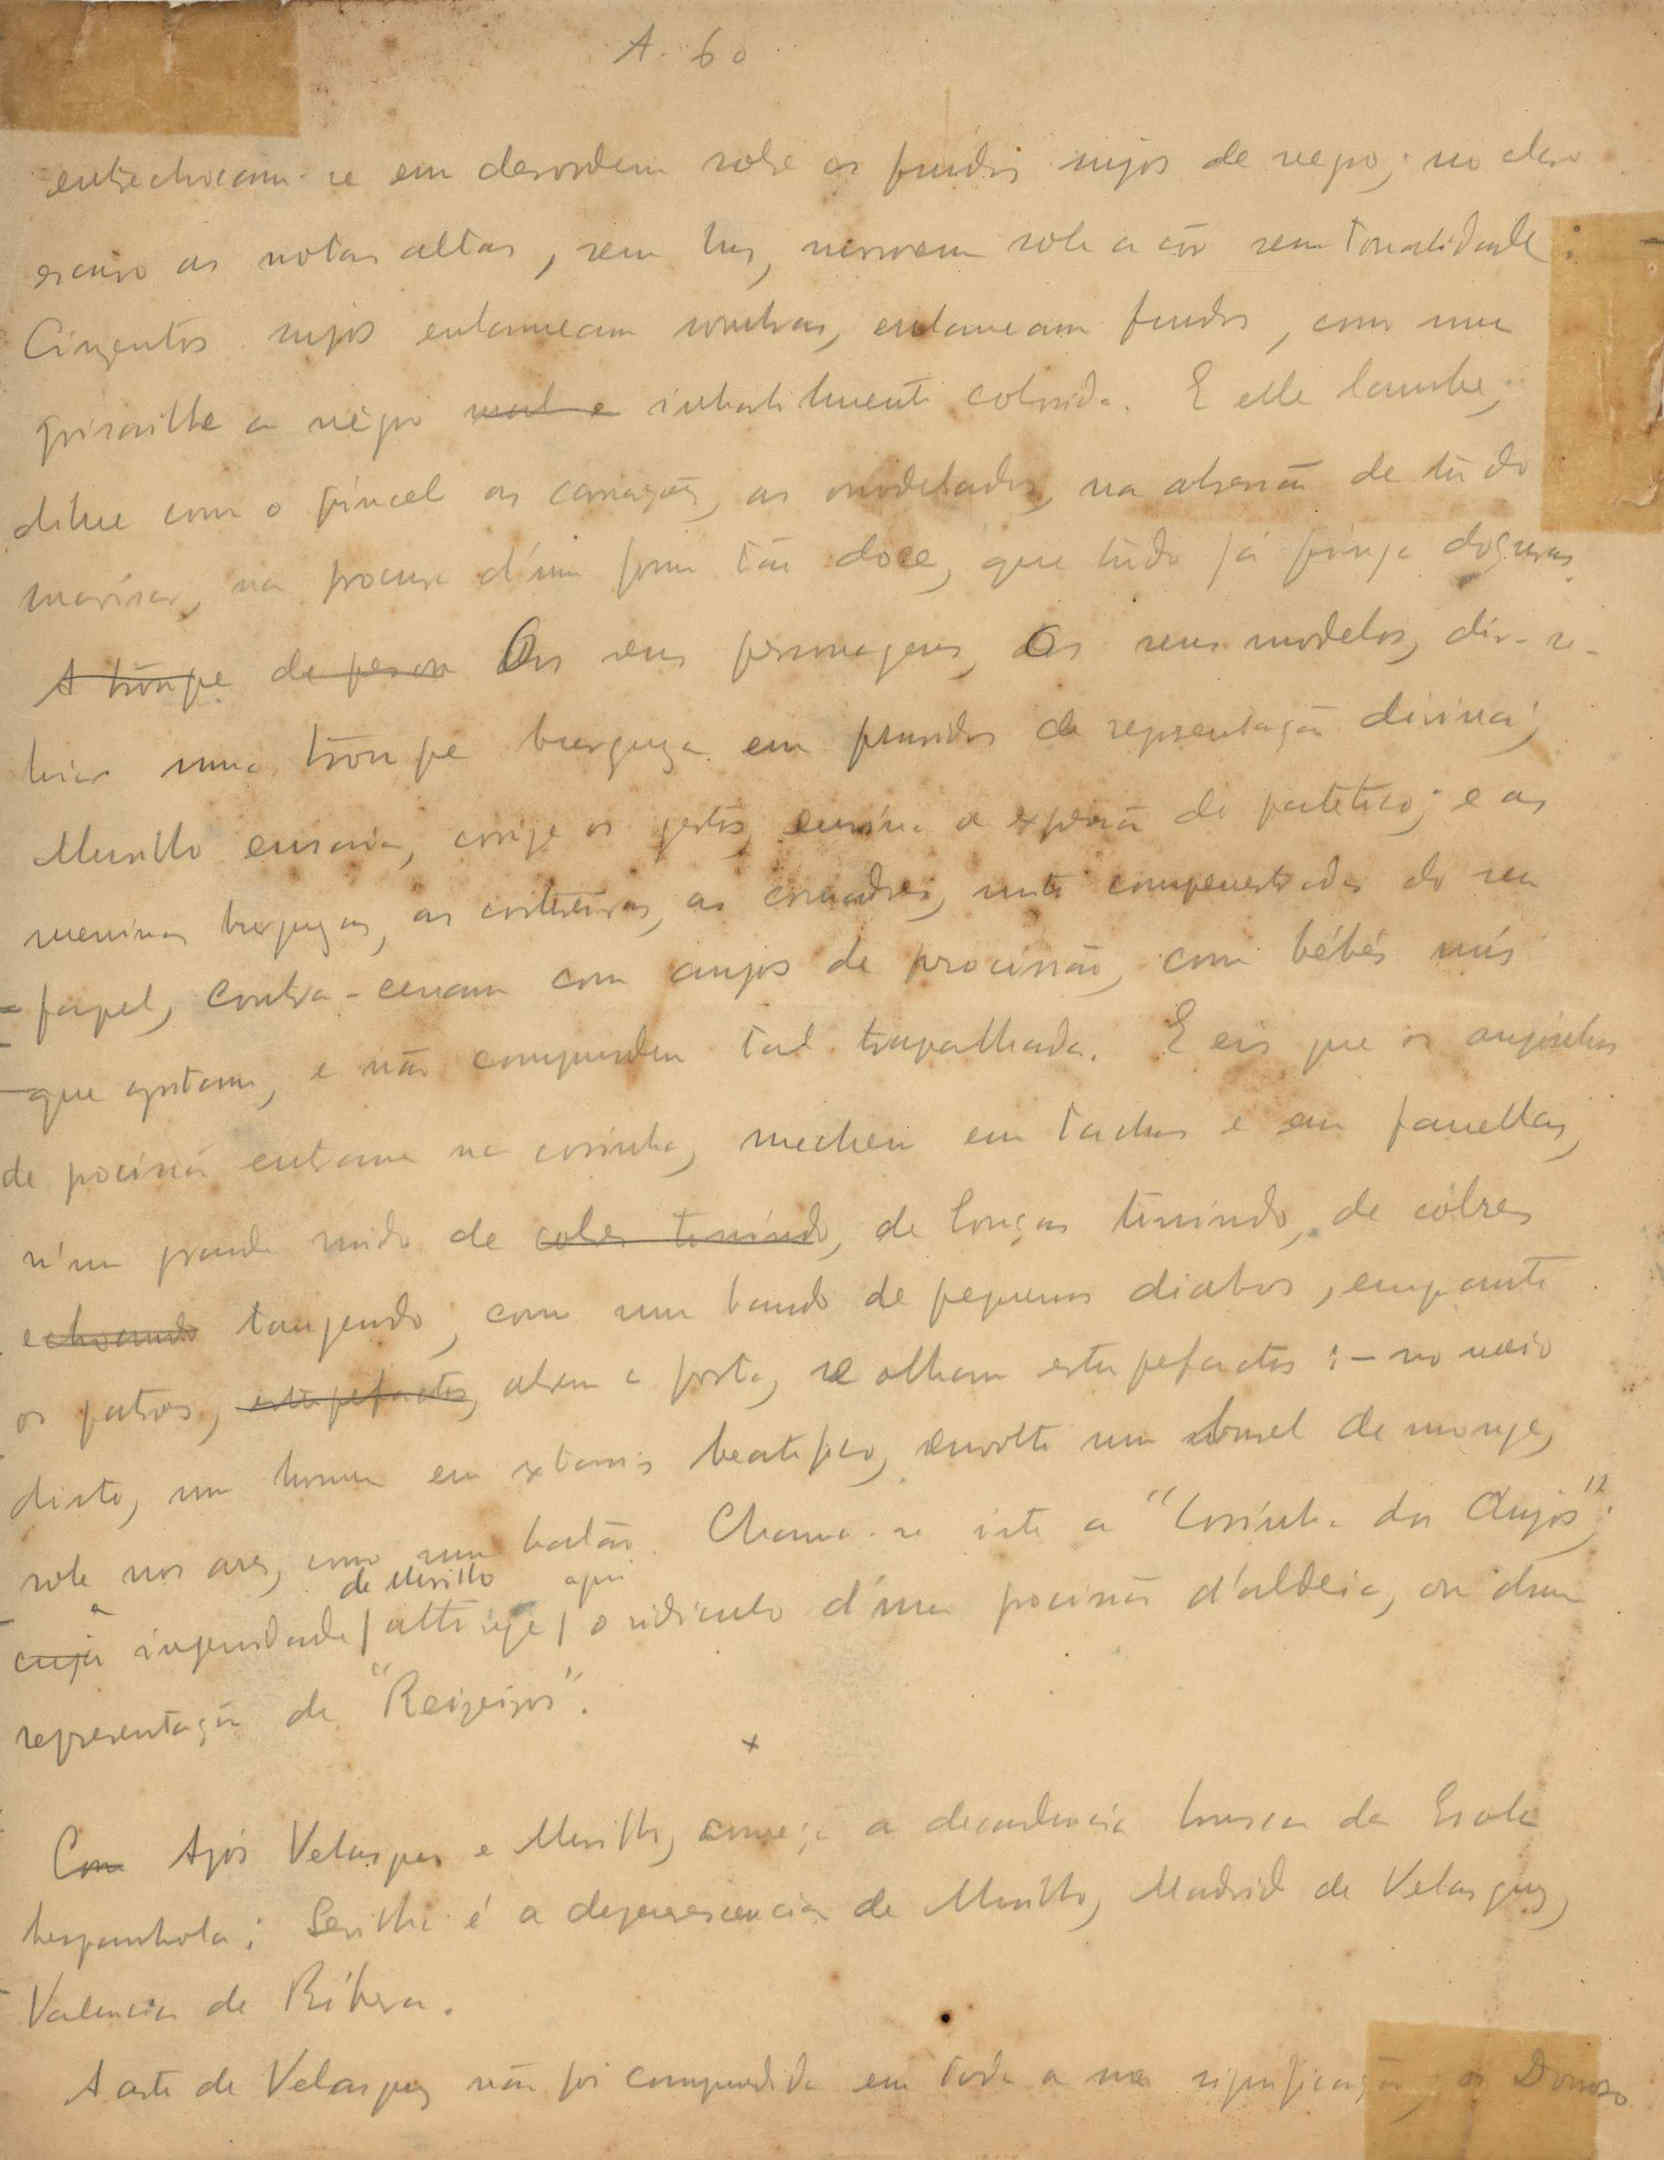 A. 60
entrechocam-se em desordem sobre os fundos sujos de negro; no claro
escuro as notas altas, sem luz, morrem sob a côr sem tonalidade:
Cinzentos sujos entorneam sombras, entorneam fundos, com uma
grisaille a négro mal e subtilmente colorida. E elle lambe,
dilue com o pincel as carnações, os modelados, na obsessão de tudo
marisar, na procura d'uma forma tão doce, que tudo já finge doçuras.
A troupe de Os seus personagens, Os seus modelos, dir-se-
hia uma troupe burgueza em pruridos de representação divina;
Murillo ensaia, corrige os gestos, ensina a expressão do patetico; e as
meninas burguezas, as costureiras, as comadres, muito compenetradas do seu
papel, contra-cenam com anjos de procissão, com bébés nús
que gritam, e não comprendem tal trapalhada. E eis que os anjinhos
de procissão entram na cosinha, mechem em tachos e em panellas,
n'um grande ruido de cobres tinindo, de louças tinindo, de cobres
echoando tangendo, como um bando de pequenos diabos, emquanto
os patrões, estupefactos, abrem a porta, se olham estupefactos: - no meio
disto, um homem em extasis beatifico, envolto num burel de monge,
sobe nos ares, como um balão. Chama-se isto a "Cosinha dos Anjos";
a de Murillo aqui
cuja ingenuidade / attinge / o ridiculo d'uma procissão d'aldeia, ou duma
representação de "Reizeiros".
x
Com Após Velasquez e Murillo, começa a decadencia brusca da Escola
hespanhola: Sevilha é a degenerescencia de Murillo, Madrid de Velasquez,
Valencia de Ribera.
A arte de Velasquez não foi comprendida em toda a sua significação; os Donoso